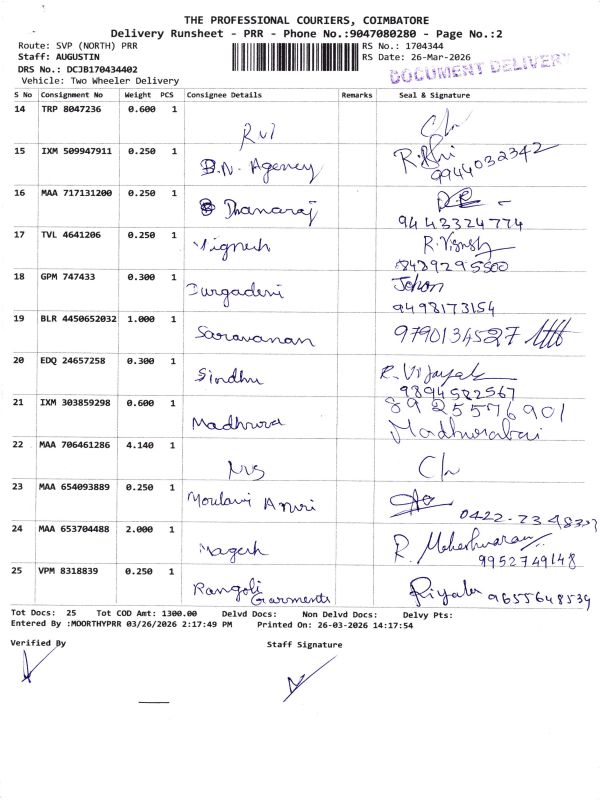 THE PROFESSIONAL COURIERS, COIMBATORE
Delivery Runsheet - PRR - Phone No.:9047080280 - Page No.:2
Route: SVP (NORTH) PRR RS No.: 1704344
Staff: AUGUSTIN RS Date: 26-Mar-2026
DRS No.: DCJB170434402
DOCUMENT DELIVERY
Vehicle: Two Wheeler Delivery
S No Consignment No Weight PCS Consignee Details Remarks Seal & Signature
14 TRP 8047236 0.600 1
15 IXM 509947911 0.250 1 B.N. Agency 9944032342
16 MAA 717131200 0.250 1 Dhanaraj 9443324774
17 TVL 4641206 0.250 1 Vignesh R.Vignesh
8489295500
18 GPM 747433 0.300 1 Durgadevi
9498173154
19 BLR 4450652032 1.000 1 Saravanan 9790134527
20 EDQ 24657258 0.300 1 Sindhu R. Vijayal
9894582567
21 IXM 303859298 0.600 1 Madhura 8925576901
Madhurabai
22 MAA 706461286 4.140 1
23 MAA 654093889 0.250 1 Moulavi
24 MAA 653704488 2.000 1 Magesh R. Maheshwaran
9952749148
25 VPM 8318839 0.250 1 Rangoli Garments 9655648534
Tot Docs: 25 Tot COD Amt: 1300.00 Delvd Docs: Non Delvd Docs: Delvy Pts:
Entered By :MOORTHYPRR 03/26/2026 2:17:49 PM Printed On: 26-03-2026 14:17:54
Verified By Staff Signature